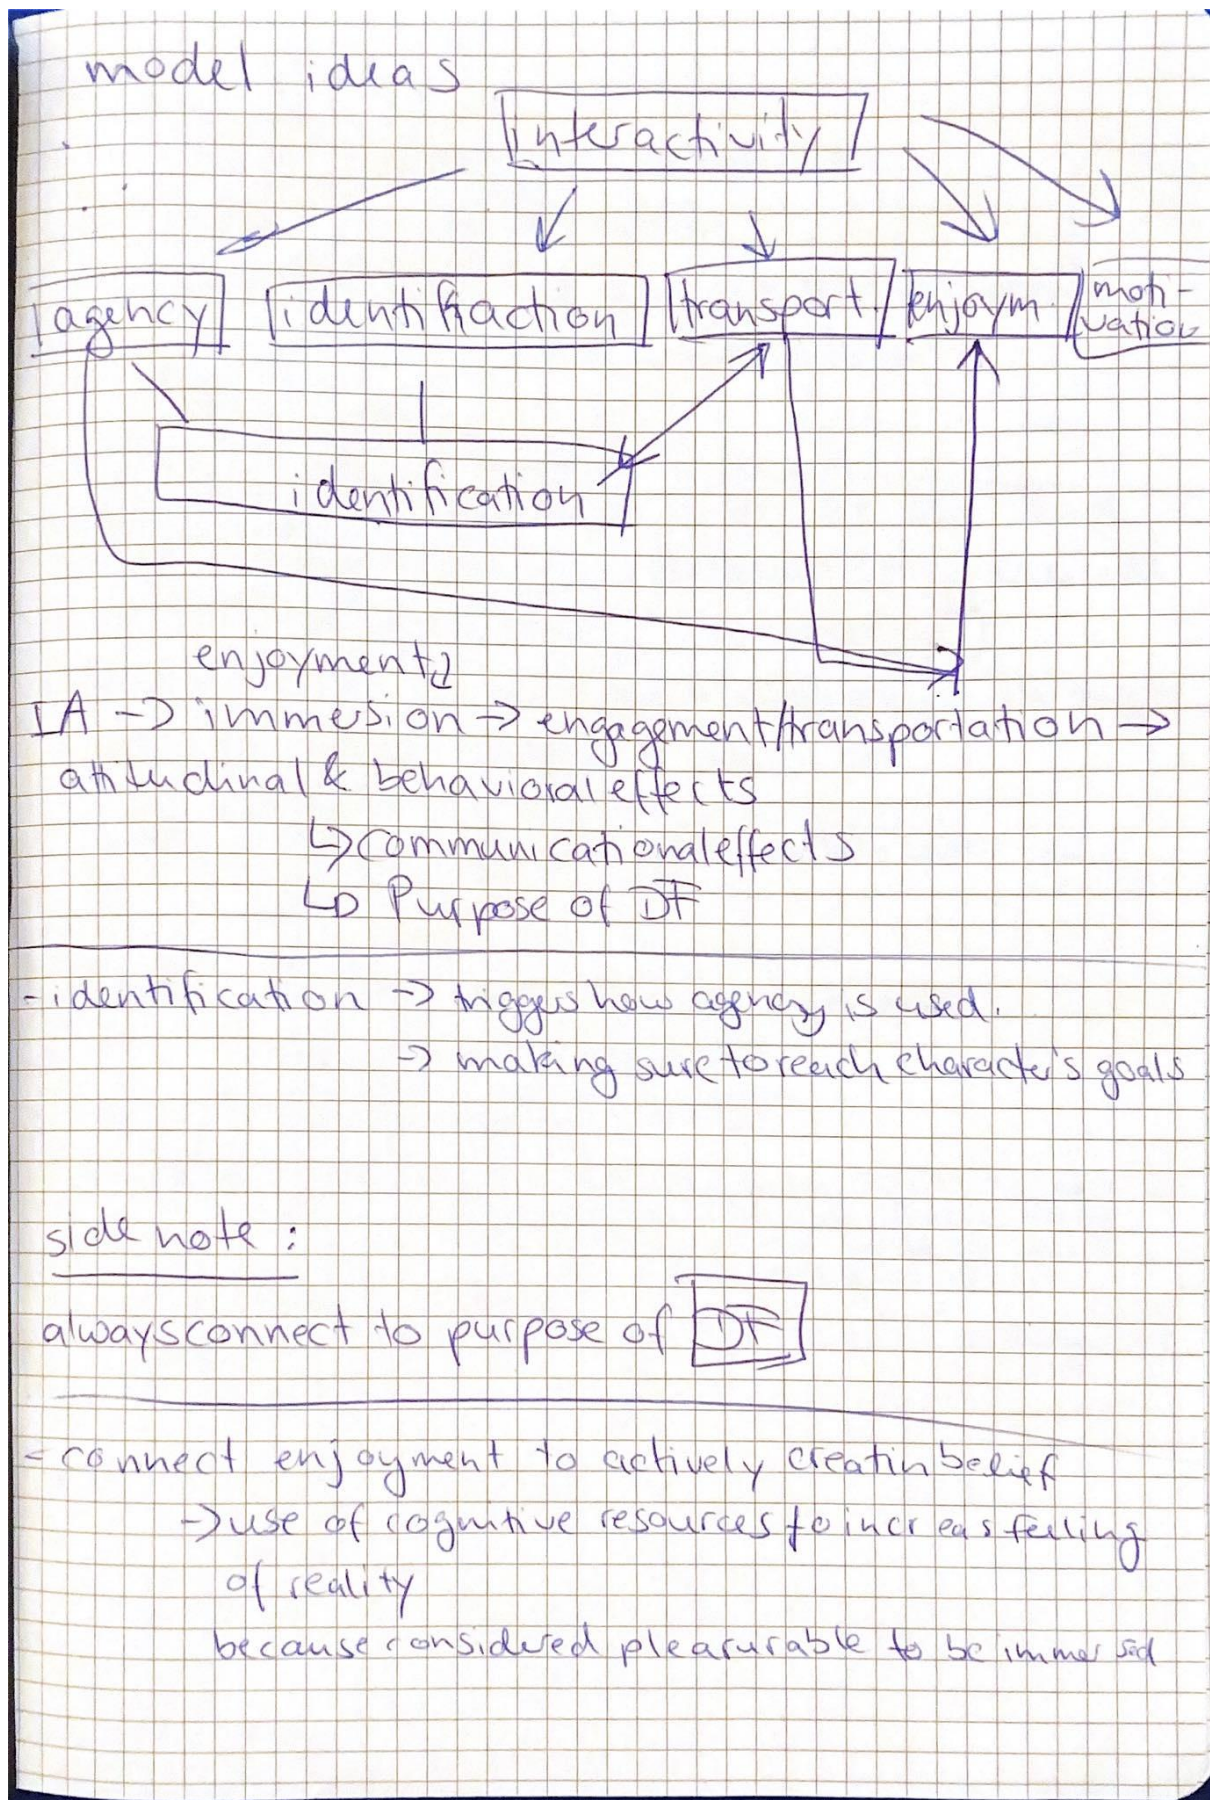 model ideas
interactivity
agency identifiaction transport. enjoym. moti-
vation
identification
enjoyment
IA -> immersion -> engagement/transportation ->
attitudinal & behavioral effects
↳ communicational effects
↳ Purpose of DF
- identification -> triggers how agency is used.
-> making sure to reach character's goals
side note :
always connect to purpose of DF
- connect enjoyment to actively creatin belief
-> use of cognitive resources to increas feeling
of reality
because considered pleasurable to be immersed